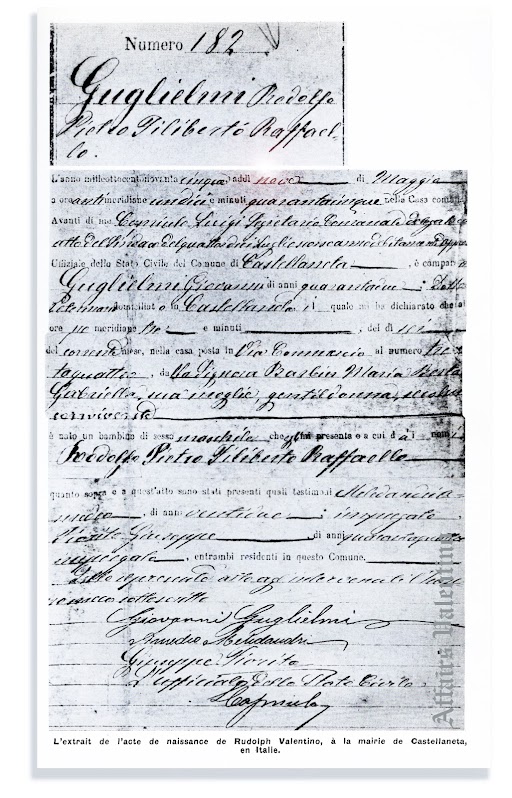 Numero 182
Guglielmi Rodolfo
Pietro Filiberto Raffael-
lo.
L'anno milleottocentonovanta cinque, addì nove di Maggio
a ore antimeridiane undici e minuti quarantacinque nella Casa comun
Avanti di me Luigi Segretario Comunale
Uffiziale dello Stato Civile del Comune di Castellaneta, è compar
Guglielmi Giovanni di anni quarantadue
domiciliato in Castellaneta il quale mi ha dichiarato che al
ore meridiane tre e minuti, del dì sei
del corrente mese, nella casa posta in Via Commercio al numero tren
taquattro, dalla Signora Barbin Maria Berta
Gabriella sua moglie, gentildonna, seco lui
convivente
è nato un bambino di sesso maschile che mi presenta e a cui dà i nomi
Rodolfo Pietro Filiberto Raffaello
quanto sopra e a quest'atto sono stati presenti quali testimoni Melidandri A-
medeo, di anni ventidue impiegato
Fiorito Giuseppe di anni
impiegato, entrambi residenti in questo Comune.
Letto il presente atto agl'intervenuti l'hanno
meco sottoscritto
Giovanni Guglielmi
Amedeo Melidandri
Giuseppe Fiorito
L'uffiziale dello Stato Civile
Affairs Valentino
L'extrait de l'acte de naissance de Rudolph Valentino, à la mairie de Castellaneta,
en Italie.